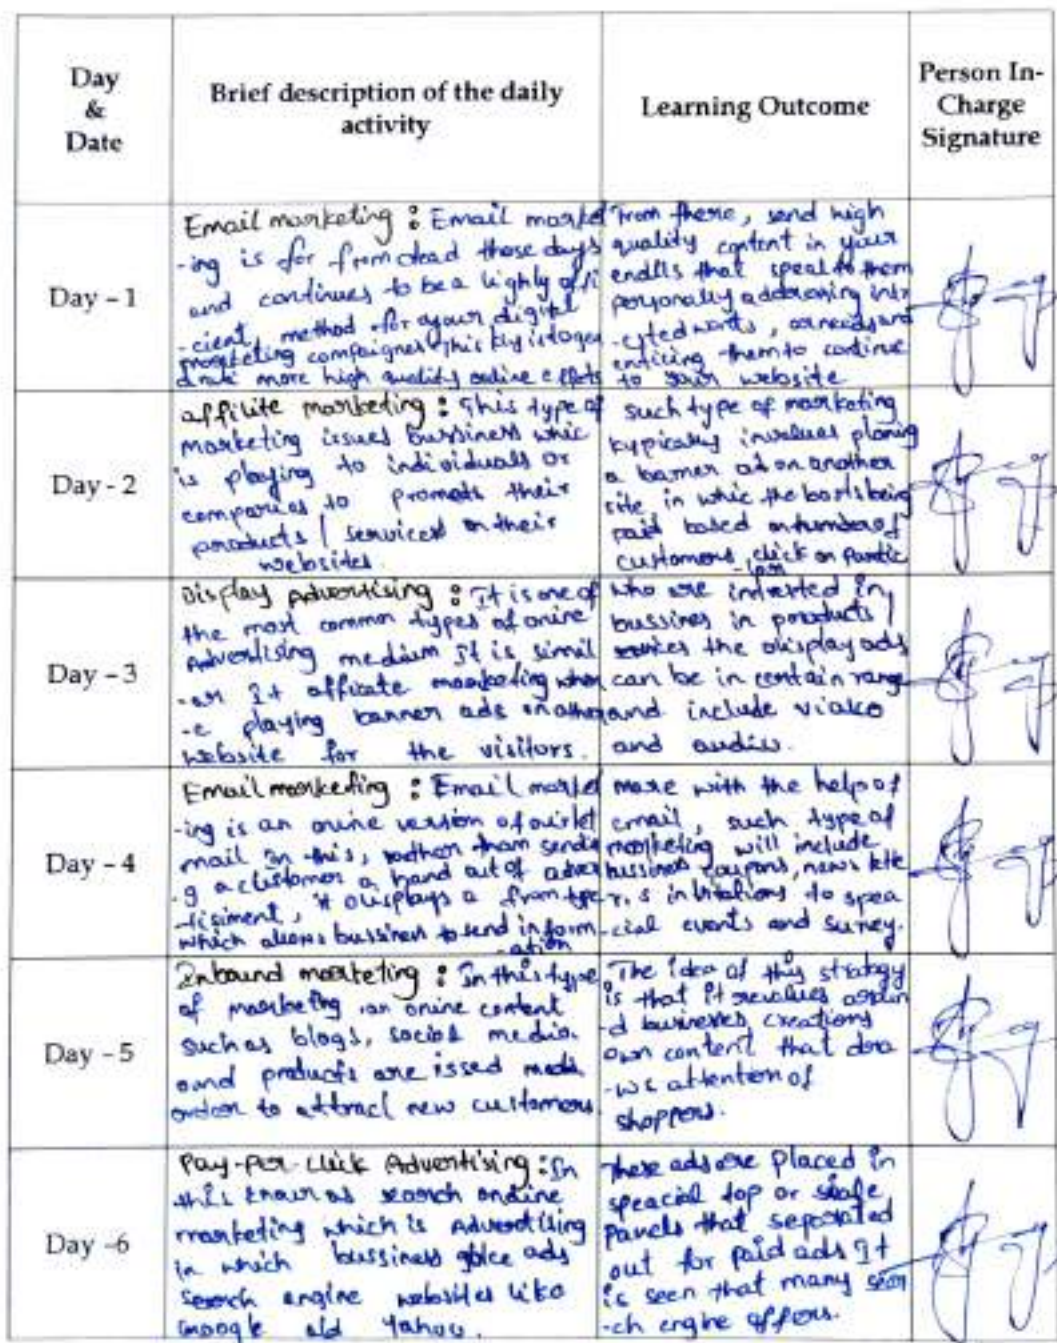 Day
&
Date
Brief description of the daily
activity
Learning Outcome
Person In-
Charge
Signature
Day - 1
Email marketing : Email market
-ing is far from dead those days
and continues to be a highly effi
-cient, method for your digital
marketing compaignes This key is to
more high quality online effots
From there, send high
quality content in your
that speal to them
personally addressing intr
-ested wants, or needs and
enticing them to continue
to your website
Day - 2
affilite marketing : This type of
marketing issues bussiness whic
is playing to individuals or
companies to promots their
products / services on their
websites.
Such type of marketing
typically involues planing
a banner ad on another
site in whic the hosts being
paid based on number of
customers, click on partic
-lar
Day - 3
Display Advertising : It is one of
the most common types of onine
Advertising medium It is simil
-ar It afficate marketing wher
-e playing banner ads on other
website for the visitors.
who are intrested in
bussines in products /
the display ads
can be in certain range
and include
and audio.
Day - 4
Email marketing : Email market
-ing is an onine version of
mail In this, rather tham sendi
-g a customer a hand out of adver
-tisiment, it displays a from type
which allows bussiness to send inform
-ation
more with the helps of
email, such type of
marketing will include
bussiness coupons, news lette
r, s invitations to spea
-cial events and survey.
Day - 5
Inbound marketing : In this type
of marketing, an onine content
such as blogs, social media.
and products are issed
order to attract new customers
The idea of this strategy
is that it revolues aroun
-d businesses, creations
own content that dra
-ws attention of
shoppers.
Day -6
Pay-Per-click Advertising : In
this known as search ondine
marketing which is Advertising
in which bussiness ads
search engine websites like
Google ald Yahoo.
These ads are placed in
speacial top or
Panels that separated
out for paid ads It
is seen that many sear
-ch engine offers.